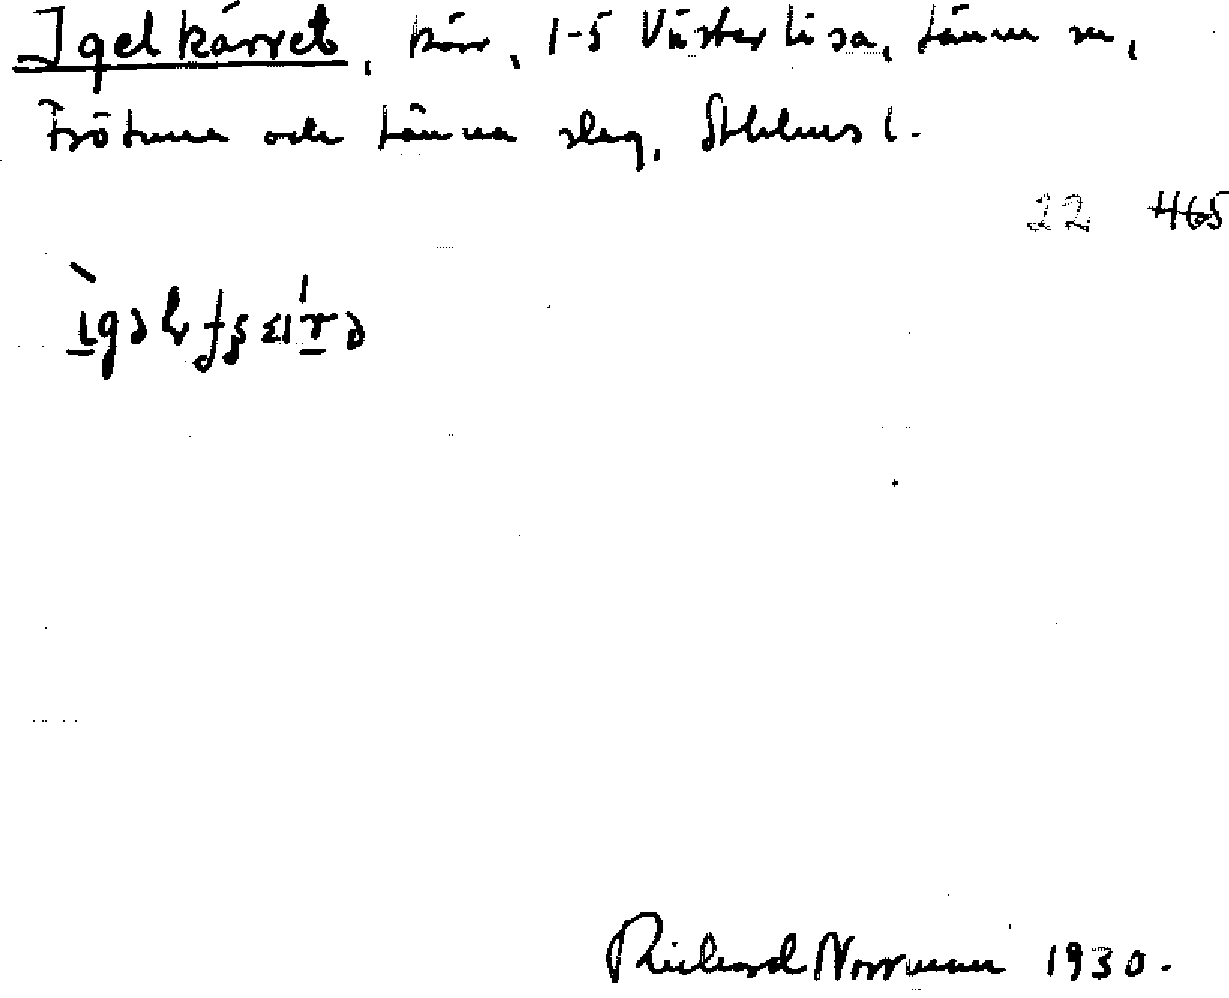 Igelkärret, kärr, 1-5 Västerlisa, Länna sn,
Frötuna och Länna slag, Sthlms l.
22 465
Richard Norrman 1930.